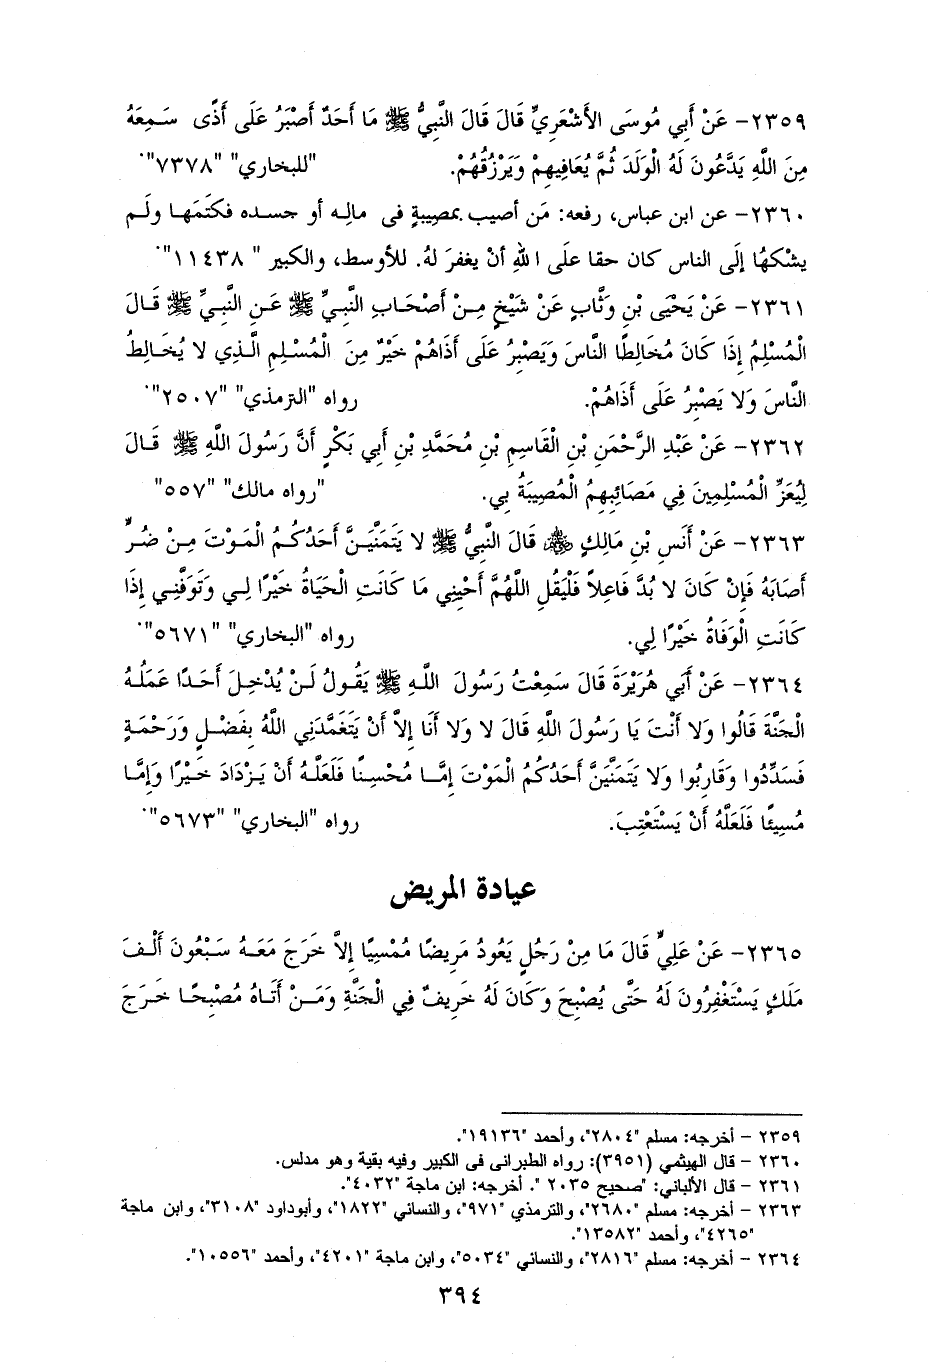 ٢٣٥٩- عَنْ أَبِي مُوسَى الأَشْعَرِيِّ قَالَ قَالَ النَّبِيُّ ﷺ مَا أَحَدٌ أَصْبَرُ عَلَى أَذًى سَمِعَهُ
مِنَ اللَّهِ يَدَّعُونَ لَهُ الْوَلَدَ ثُمَّ يُعَافِيهِمْ وَيَرْزُقُهُمْ. "للبخاري" "٧٣٧٨".
٢٣٦٠- عن ابن عباس، رفعه: مَن أصيب بمصيبةٍ فى مالِه أو جسده فكتَمَها ولَم
يشْكهُا إلَى الناس كان حقا علَى اللهِ أنْ يغفرَ لهُ. للأوسط، والكبير "١١٤٣٨".
٢٣٦١- عَنْ يَحْيَى بْنِ وَثَّابٍ عَنْ شَيْخٍ مِنْ أَصْحَابِ النَّبِيِّ ﷺ عَنِ النَّبِيِّ ﷺ قَالَ
الْمُسْلِمُ إِذَا كَانَ مُخَالِطًا النَّاسَ وَيَصْبِرُ عَلَى أَذَاهُمْ خَيْرٌ مِنَ الْمُسْلِمِ الَّذِي لا يُخَالِطُ
النَّاسَ وَلا يَصْبِرُ عَلَى أَذَاهُمْ. رواه "الترمذي" "٢٥٠٧".
٢٣٦٢- عَنْ عَبْدِ الرَّحْمَنِ بْنِ الْقَاسِمِ بْنِ مُحَمَّدِ بْنِ أَبِي بَكْرٍ أَنَّ رَسُولَ اللَّهِ ﷺ قَالَ
لِيُعَزِّ الْمُسْلِمِينَ فِي مَصَائِبِهِمُ الْمُصِيبَةُ بِي. "رواه مالك" "٥٥٧"
٢٣٦٣- عَنْ أَنَسِ بْنِ مَالِكٍ ﷺ قَالَ النَّبِيُّ ﷺ لا يَتَمَنَّيَنَّ أَحَدُكُمُ الْمَوْتَ مِنْ ضُرٍّ
أَصَابَهُ فَإِنْ كَانَ لا بُدَّ فَاعِلاً فَلْيَقُلِ اللَّهُمَّ أَحْيِنِي مَا كَانَتِ الْحَيَاةُ خَيْرًا لِي وَتَوَفَّنِي إِذَا
كَانَتِ الْوَفَاةُ خَيْرًا لِي. رواه "البخاري" "٥٦٧١".
٢٣٦٤- عَنْ أَبِي هُرَيْرَةَ قَالَ سَمِعْتُ رَسُولَ اللَّهِ ﷺ يَقُولُ لَنْ يُدْخِلَ أَحَدًا عَمَلُهُ
الْجَنَّةَ قَالُوا وَلا أَنْتَ يَا رَسُولَ اللَّهِ قَالَ لا وَلا أَنَا إِلاَّ أَنْ يَتَغَمَّدَنِي اللَّهُ بِفَضْلٍ وَرَحْمَةٍ
فَسَدِّدُوا وَقَارِبُوا وَلا يَتَمَنَّيَنَّ أَحَدُكُمُ الْمَوْتَ إِمَّا مُحْسِنًا فَلَعَلَّهُ أَنْ يَزْدَادَ خَيْرًا وَإِمَّا
مُسِيئًا فَلَعَلَّهُ أَنْ يَسْتَعْتِبَ. رواه "البخاري" "٥٦٧٣".
عيادة المريض
٢٣٦٥- عَنْ عَلِيٍّ قَالَ مَا مِنْ رَجُلٍ يَعُودُ مَرِيضًا مُمْسِيًا إِلاَّ خَرَجَ مَعَهُ سَبْعُونَ أَلْفَ
مَلَكٍ يَسْتَغْفِرُونَ لَهُ حَتَّى يُصْبِحَ وَكَانَ لَهُ خَرِيفٌ فِي الْجَنَّةِ وَمَنْ أَتَاهُ مُصْبِحًا خَرَجَ
٢٣٥٩ - أخرجه: مسلم "٢٨٠٤"، وأحمد "١٩١٣٦".
٢٣٦٠ - قال الهيثمي (٣٩٥١): رواه الطبرانى فى الكبير وفيه بقية وهو مدلس.
٢٣٦١ - قال الألباني: "صحيح ٢٠٣٥ ". أخرجه: ابن ماجة "٤٠٣٢".
٢٣٦٣ - أخرجه: مسلم "٢٦٨٠"، والترمذي "٩٧١"، والنسائي "١٨٢٢"، وأبوداود "٣١٠٨"، وابن ماجة
"٤٢٦٥"، وأحمد "١٣٥٨٢".
٢٣٦٤ - أخرجه: مسلم "٢٨١٦"، والنسائي "٥٠٣٤"، وابن ماجة "٤٢٠١"، وأحمد "١٠٥٥٦".
٣٩٤